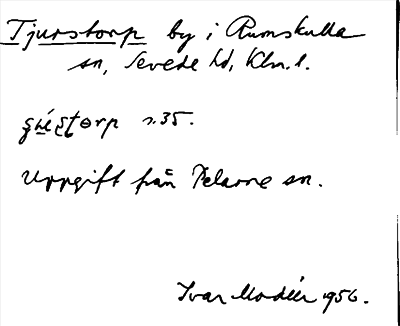 Tjurstorp by i Rumskulla
sn, Sevede hd, Klm. l.
s. 35.
Uppgift från Pelarne sn.
Ivar Modéer 1956.